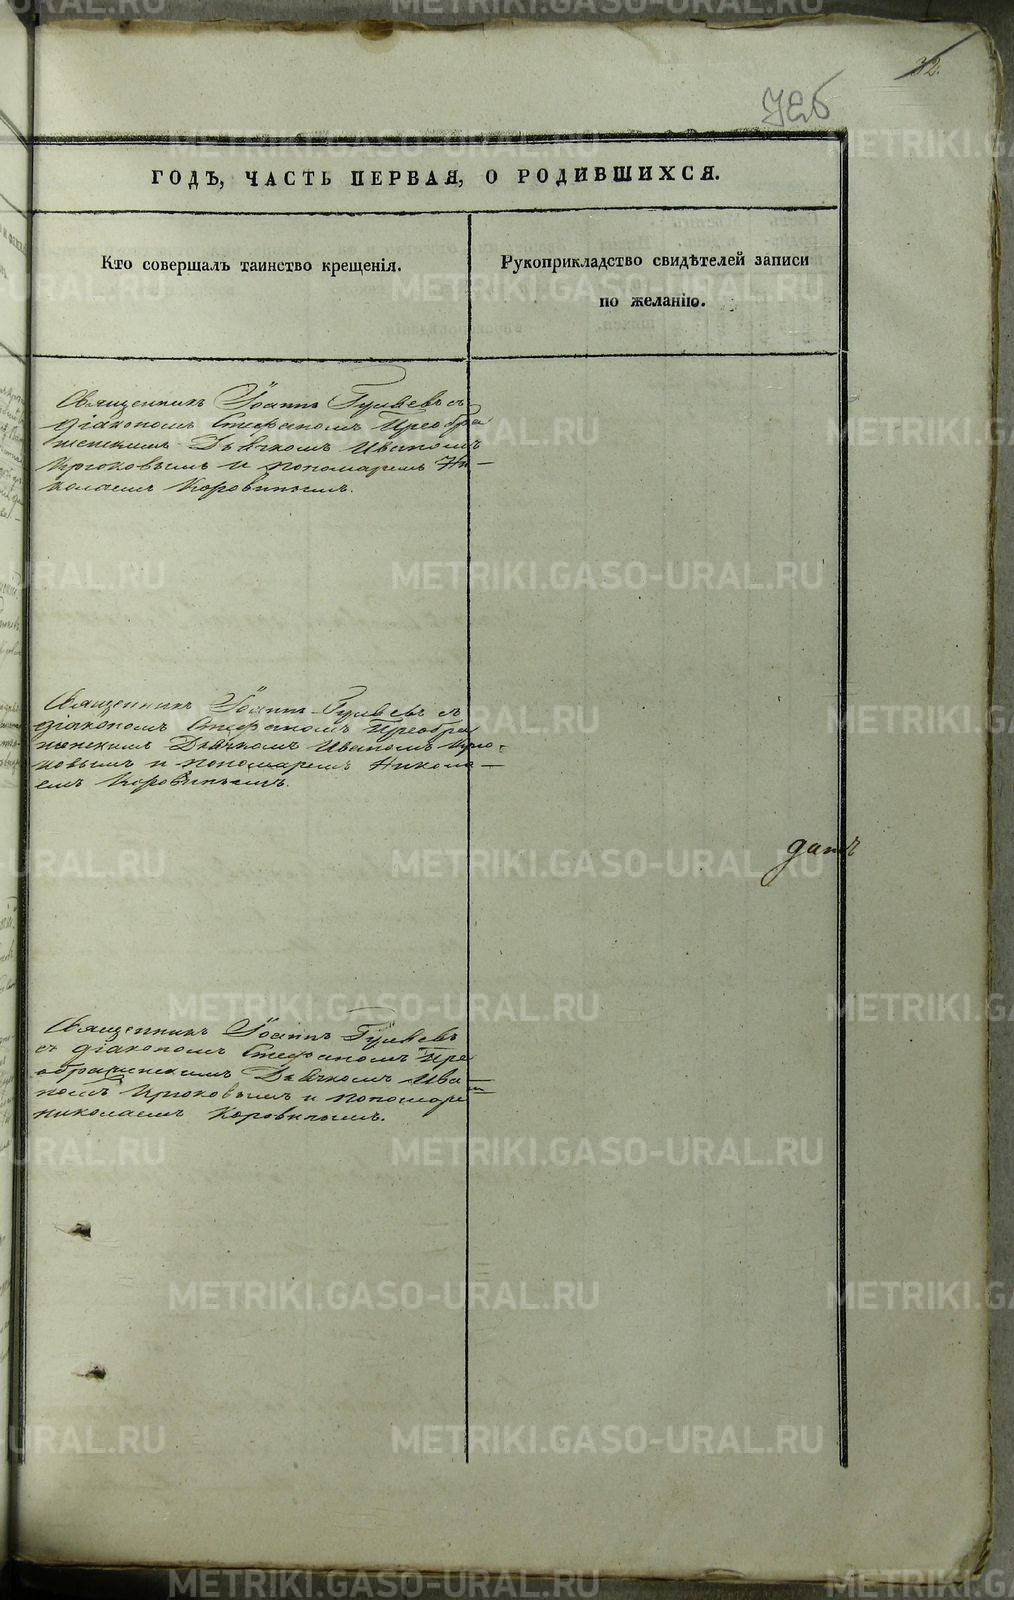 32.
726
ГОДЪ, ЧАСТЬ ПЕРВАЯ, О РОДИВШИХСЯ.
Кто совершалъ таинство крещенія.
Рукоприкладство свидѣтелей записи
по желанію.
Священникъ Іоаннъ Гуляевъ съ
діакономъ Стефаномъ Преобра
женскимъ Дьячкомъ Иваномъ
Крюковымъ и пономаремъ Ни-
колаемъ Коровинымъ.
Священникъ Іоаннъ Гуляевъ съ
діакономъ Стефаномъ Преобра
женскимъ Дьячкомъ Иваномъ Крю-
ковымъ и пономаремъ Никола-
емъ Коровинымъ.
Священникъ Іоаннъ Гуляевъ
съ діакономъ Стефаномъ Пре
ображенскимъ Дьячкомъ Ива-
номъ Крюковымъ и пономаремъ
Николаемъ Коровинымъ.
METRIKI.GASO-URAL.RU